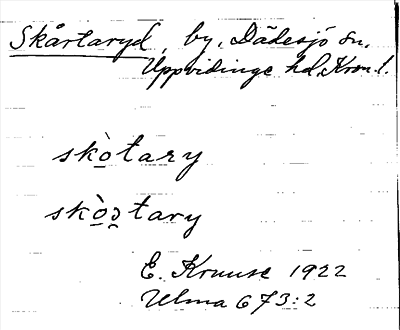 Skårtaryd, by, Dädesjö sn.
Uppvidinge hd, Kron. l.
skò̲tary
skò̲ɔ̯tary
E. Kruuse 1922
Ulma 673:2